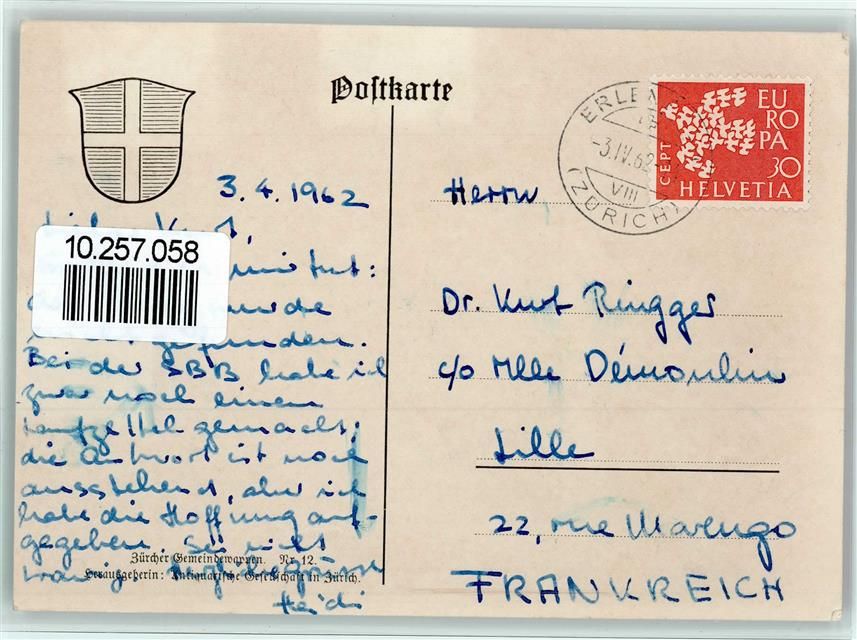 Postkarte
ERLEN
-3.IV.62
VIII
(ZÜRICH)
CEPT
EU
RO
PA
30
HELVETIA
10.257.058
3.4.1962
mir tut:
wurde
gefunden.
Bei der SBB habe ich
zwar noch einen
gemacht;
die Antwort ist noch
ausstehend, aber ich
habe die Hoffnung auf-
gegeben. Sei nicht
traurig.
Heidi
Zürcher Gemeindewappen. Nr. 12.
Herausgeberin: Antiquarische Gesellschaft in Zürich.
Herrn
Dr. Kurt Ringger
c/o Mlle Démoulin
Lille
22, rue Marengo
FRANKREICH